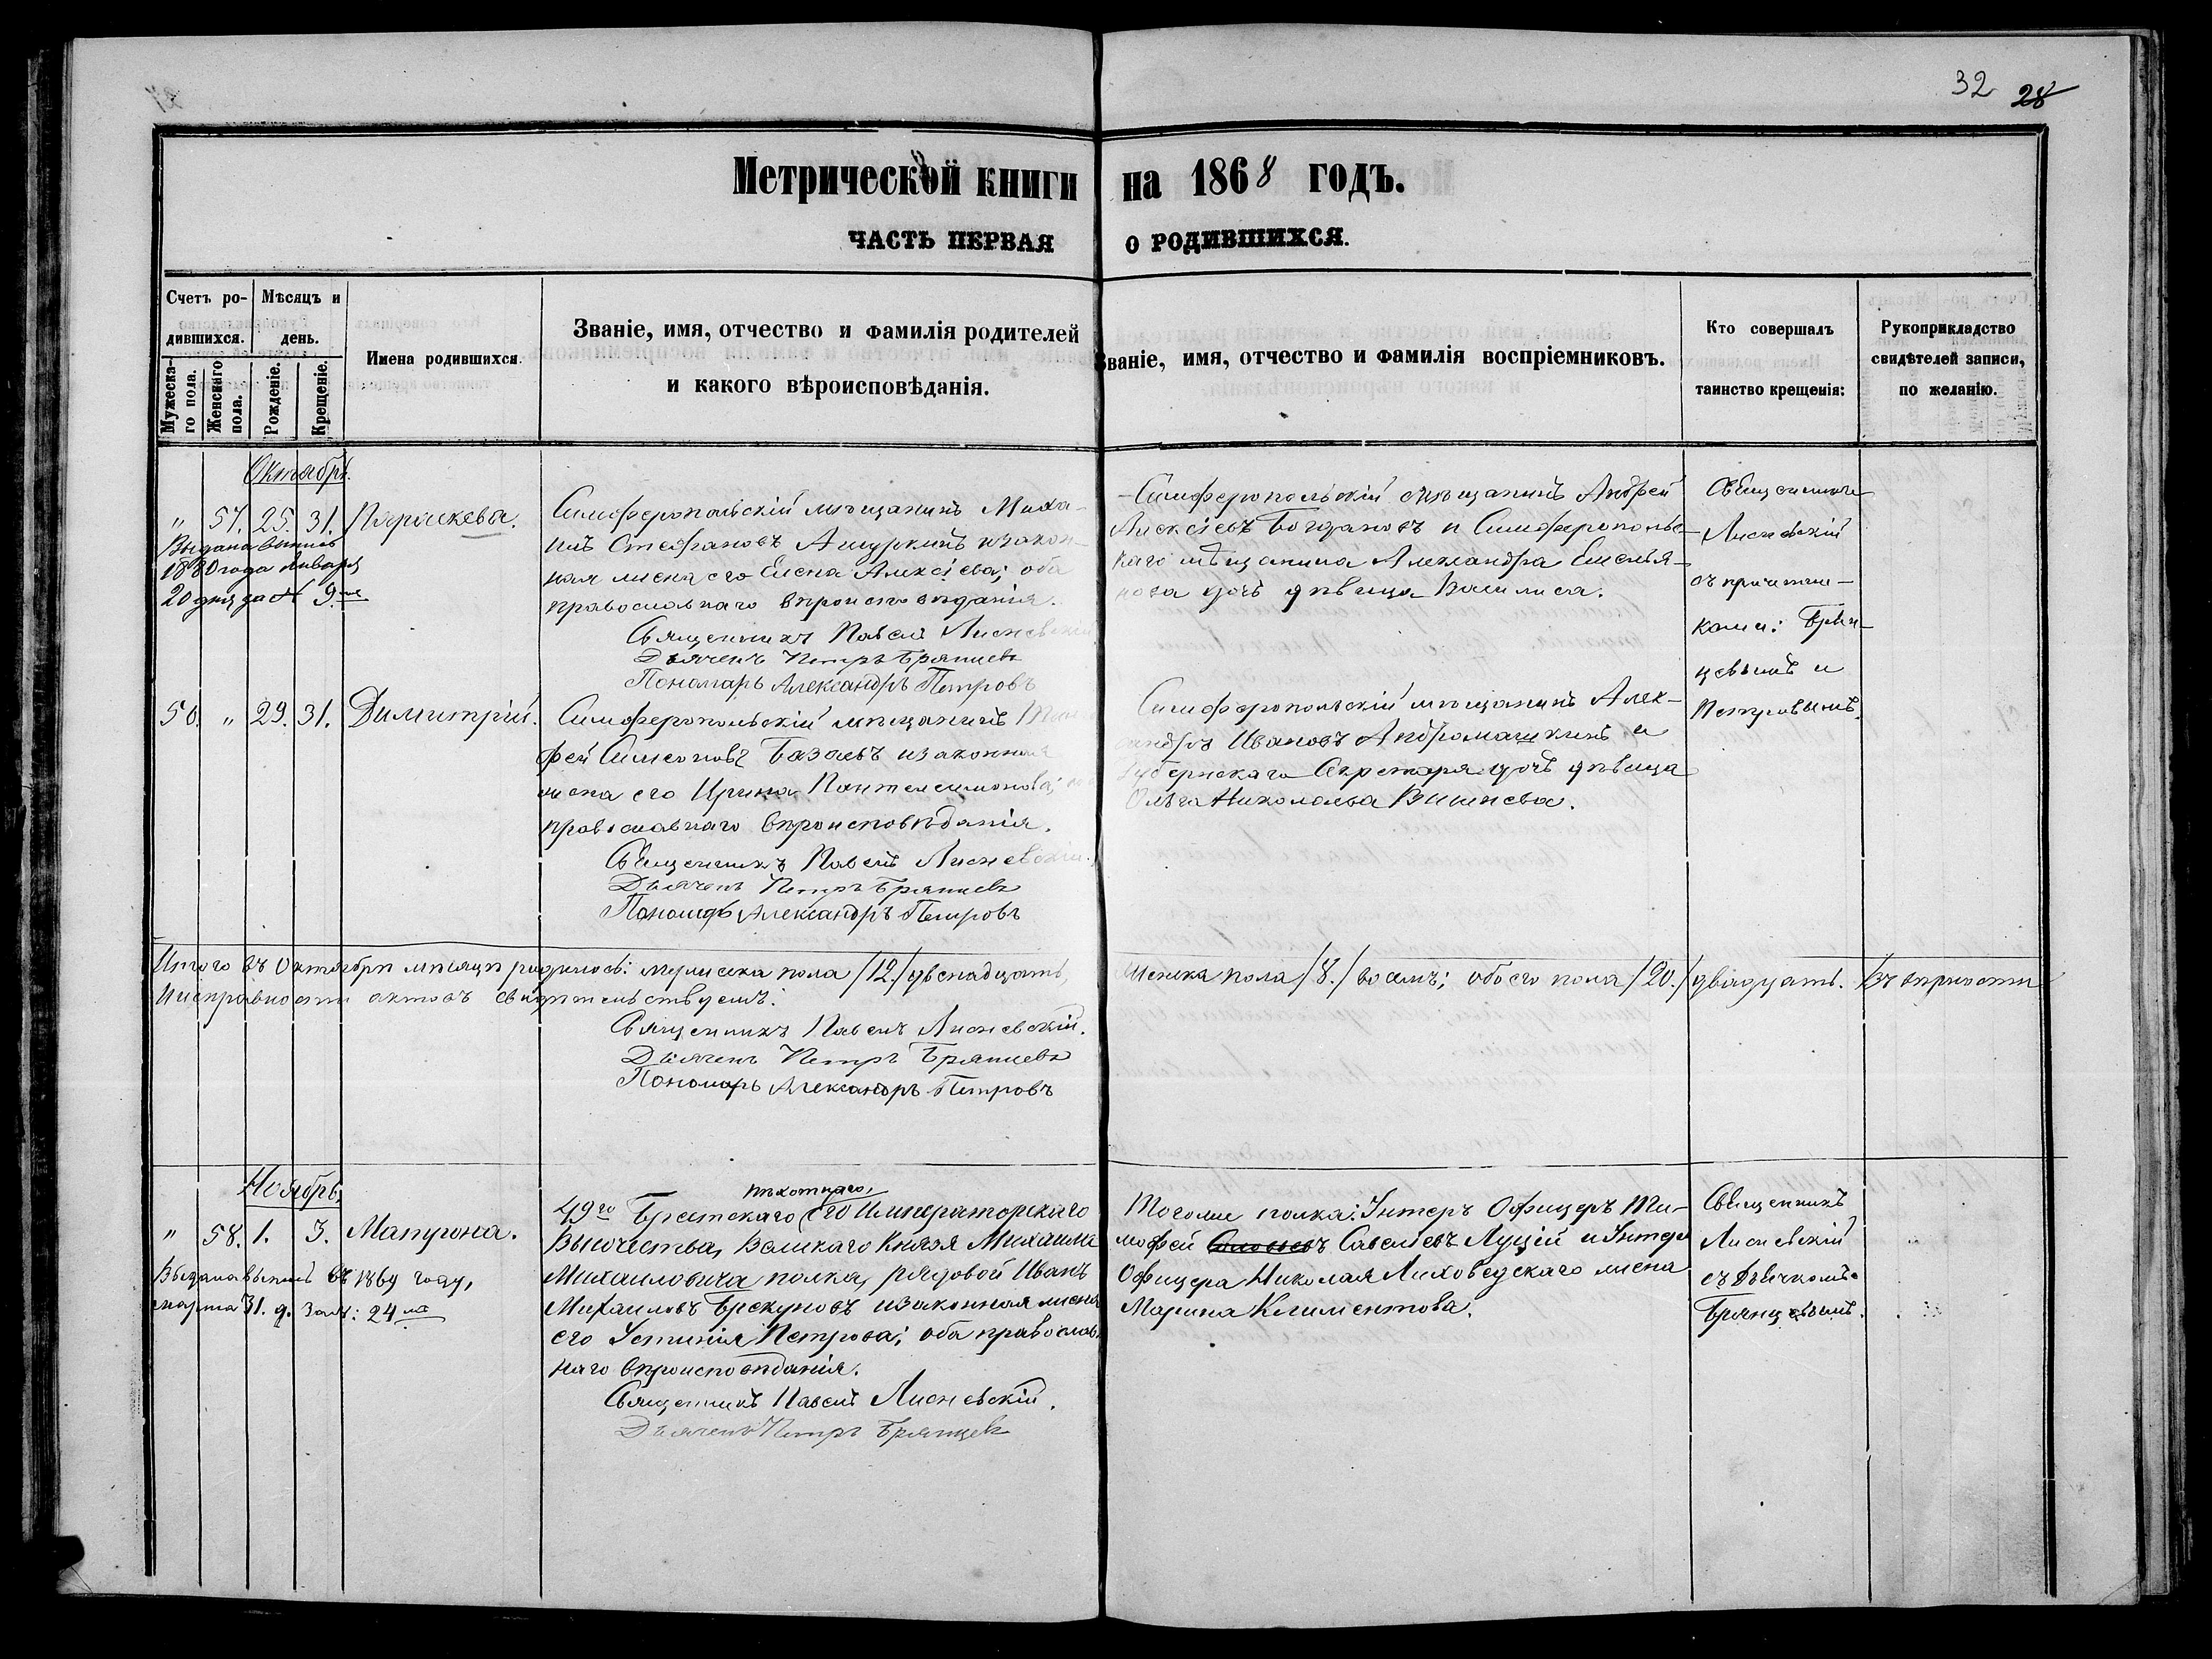 32 28
Метрической книги на 1868 годъ.
ЧАСТЬ ПЕРВАЯ О РОДИВШИХСЯ.
Счетъ ро-
дившихся.
Мужеска-
го пола.
Женскаго
пола.
Мѣсяцъ и
день.
Рожденіе.
Крещеніе.
Имена родившихся.
Званіе, имя, отчество и фамилія родителей
и какого вѣроисповѣданія.
Званіе, имя, отчество и фамилія воспріемниковъ.
Кто совершалъ
таинство крещенія:
Рукоприкладство
свидѣтелей записи,
по желанію.
Октябрь.
" 57. 25. 31. Параскева.
Выдана выпись
1880 года Января
20 дня за № 9.
Симферопольскій мѣщанинъ Миха-
илъ Стефановъ и закон-
ная жена его Елена Алексѣева; оба
православнаго вѣроисповѣданія.
Священникъ Павелъ Лисневскій
Дьячекъ Петръ Брянцевъ
Пономарь Александръ Петровъ
Симферопольскій мѣщанинъ Андрей
Алексѣевъ Богдановъ и Симферопольс-
каго мѣщанина Александра Емелья-
нова дочь дѣвица Василиса.
Священникъ
Лисневскій
съ причетни-
ками: Брян-
цевымъ и
Петровымъ.
50. " 29. 31. Димитрій.
Симферопольскій мѣщанинъ
фей Симеоновъ и законная
жена его Ирина Пантелеимонова;
православнаго вѣроисповѣданія.
Священникъ Павелъ Лисневскій.
Дьячекъ Петръ Брянцевъ
Пономарь Александръ Петровъ
Симферопольскій мѣщанинъ Алек-
сандръ Ивановъ Андромашкинъ и
Губернскаго Секретаря дочь дѣвица
Ольга Николаева Вишнева.
Итого въ Октябрѣ мѣсяцѣ родилось: мужеска пола /12./ двѣнадцать,
женска пола /8./ восемь; обоего пола /20./ двадцать. Въ вѣрности
и исправности актовъ свидѣтельствуемъ:
Священникъ Павелъ Лисневскій.
Дьячекъ Петръ Брянцевъ
Пономарь Александръ Петровъ
Ноябрь.
" 58. 1. 3.
Выдана выпись въ 1869 году,
марта 31. д. за №: 24
пѣхотнаго,
49го Брестскаго Его Императорскаго
Высочества, Великаго Князя Михаила
Михаиловича полка, рядовой Иванъ
Михаиловъ Брекуновъ и законная жена
его Устинія Петрова; оба православ-
наго вѣроисповѣданія.
Священникъ Павелъ Лисневскій.
Дьячекъ Петръ Брянцевъ
Тогоже полка: Унтеръ Офицеръ Ти-
мофей Савельевъ Луцій и Унтеръ
Офицера Николая Лиховедскаго жена
Марина Климентова.
Священникъ
Лисневскій
съ Дьячкомъ
Брянцевымъ.